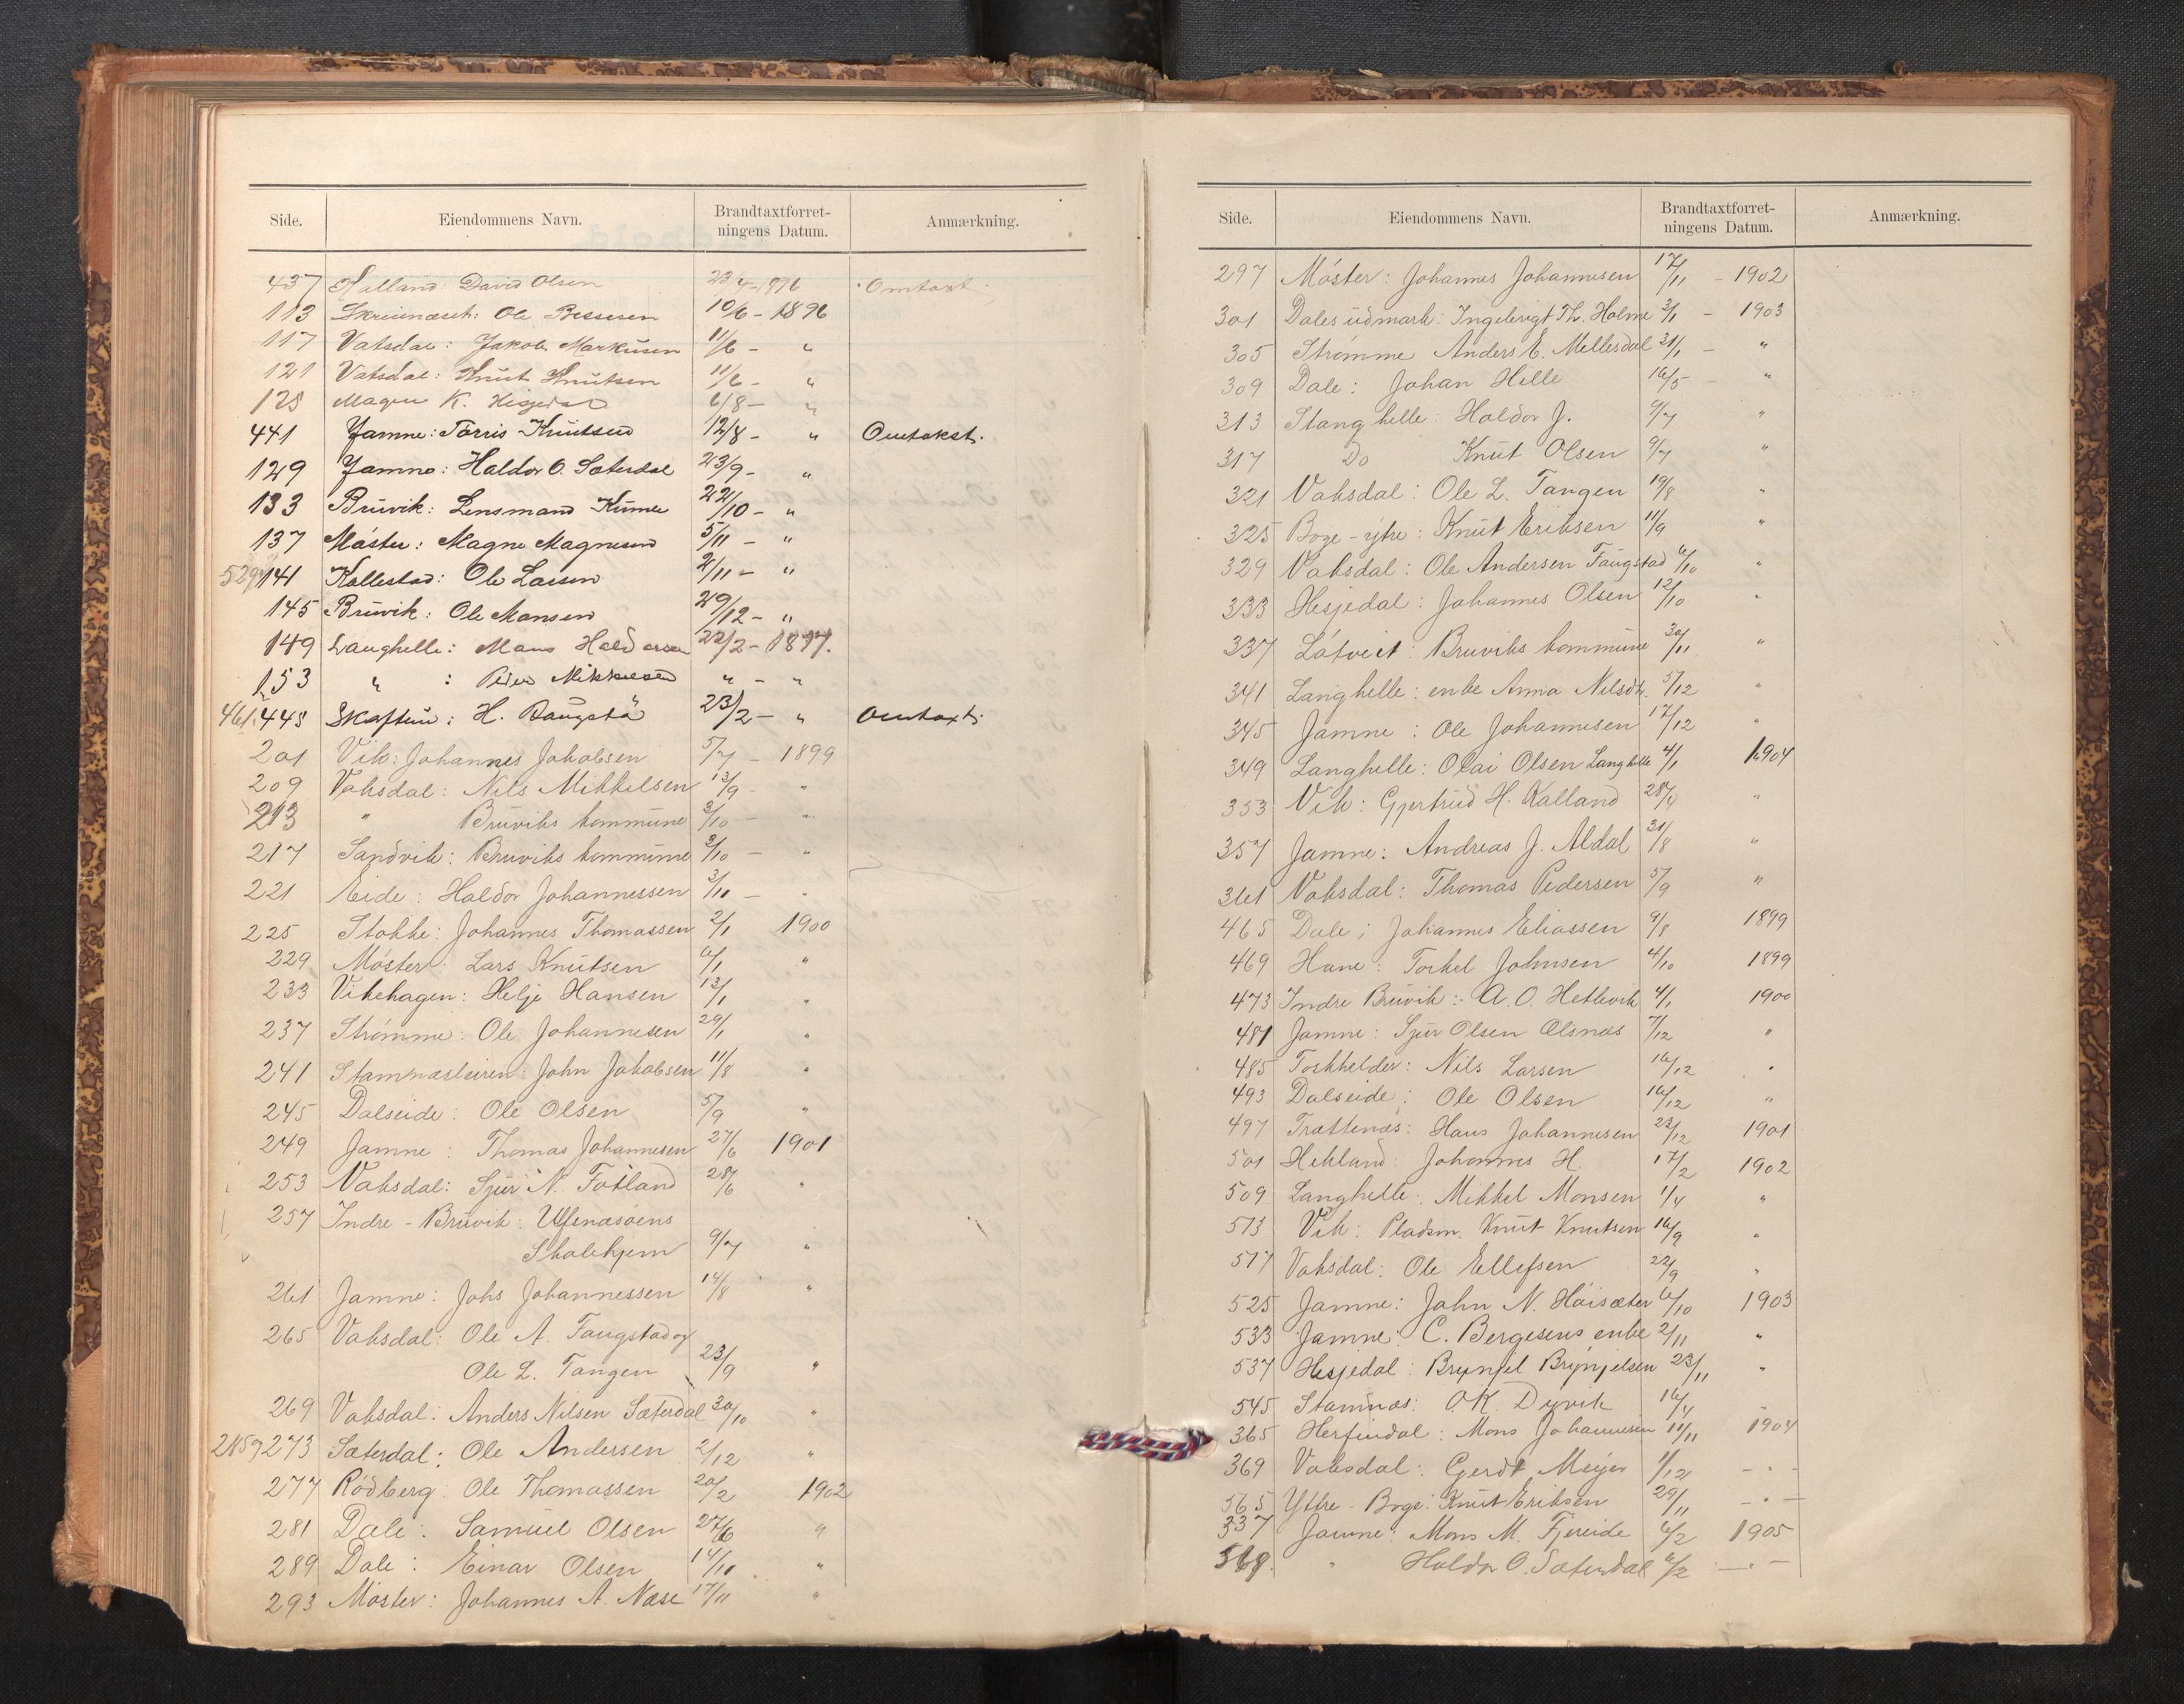 Side. Eiendommens Navn. Brandtaxtforret-ningens Datum. Anmærkning.
437 Kalland David Olsen 23/4-1896 Omtaxt.
113 Ole Bessesen 10/6 - 1896
117 Vatsdal: Jakob Markusen 11/6 - "
121 Vatsdal: Knut Knutsen 11/6 - "
125 Magne K. Hesjedal 6/8 - "
441 Jamne: Torris Knutsen 12/8 - " Omtakst.
129 Jamne: Haldor O. Sæterdal 23/9 - "
133 Bruvik: Lensmand 22/10 - "
137 Mäster: Magne Magnesen 5/11 - "
529 141 Kallestad: Ole Larsen 2/11 - "
145 Bruvik: Ole Monsen 29/12 - "
149 Langhelle: Mons Haldorsen 22/2 - 1897.
153 " : Peder Mikkelsen " - "
461. 445 Skaftun: H. Baugstø 23/2 - " Omtaxt.
201 Vik: Johannes Jakobsen 5/7 - 1899
209 Vaksdal: Nils Mikkelsen 13/9 - "
213 " Bruviks kommune 3/10 - "
217 Sandvik: Bruviks kommune 3/10 - "
221 Eide: Haldor Johannessen 3/10 - "
225 Stokke: Johannes Thomassen 2/1 1900
229 Möster: Lars Knutsen 6/1 "
233 Vikehagen: Helje Hansen 13/1 "
237 Strömme: Ole Johannesen 29/1 "
241 Stamnæsleiren: John Jakobsen 11/8 "
245 Dalseide: Ole Olsen 5/9 "
249 Jamne: Thomas Johannesen 27/6 1901
253 Vaksdal: Sjur N. Fotland 28/6 "
257 Indre - Bruvik: Ulfenæsöens
Skolehjem 9/7 "
261 Jamne: Johs Johannessen 14/8 "
265 Vaksdal: Ole A. Faugstad og
Ole L. Tangen 23/9 "
269 Vaksdal: Anders Nilsen Sæterdal 30/10 "
285 273 Sæterdal: Ole Andersen 2/12 "
277 Rödberg: Ole Thomassen 20/2 1902
281 Dale: Samuel Olsen 27/6 "
289 Dale: Einar Olsen 14/10 "
293 Möster: Johannes A. Næse 17/11 "
Side. Eiendommens Navn. Brandtaxtforret-ningens Datum. Anmærkning.
297 Möster: Johannes Johannesen 17/11 - 1902
301 Dales udmark: Ingebrigt Th. Holme 3/1 - 1903
305 Strömme Anders E. Mellesdal 31/1 - "
309 Dale: Johan Hille 16/5 - "
313 Stanghelle: Haldor J. 9/7 "
317 Do Knut Olsen 9/7 "
321 Vaksdal: Ole L. Tangen 19/8 "
325 Boge - ytre: Knut Eriksen 11/9 "
329 Vaksdal: Ole Andersen Faugstad 6/10 "
333 Hesjedal: Johannes Olsen 12/10 "
337 Lötveit: Bruviks kommune 30/11 "
341 Langhelle: enke Anna Nilsdt. 5/12 "
345 Jamne: Ole Johannesen 17/12 "
349 Langhelle: Olai Olsen Langhelle 4/1 1904
353 Vik: Gjertrud H. Kalland 28/4 "
357 Jamne: Andreas J. Aldal 31/8 "
361 Vaksdal: Thomas Pedersen 5/9 "
465 Dale: Johannes Eliassen 9/8 1899
469 Hane: Torkel Johnsen 4/10 1899
473 Indre Bruvik: A. O. Hetlevik 4/1 1900
481 Jamne: Sjur Olsen Olsnæs 7/12 "
485 Toskhelder: Nils Larsen 16/12 "
493 Dalseide: Ole Olsen 16/12 "
497 Trættenæs: Hans Johannesen 23/12 1901
501 Hekland: Johannes H. 17/2 1902
509 Langhelle: Mikkel Monsen 1/4 "
513 Vik: Pladsm. Knut Knutsen 16/9 "
517 Vaksdal: Ole Ellefsen 22/9 "
525 Jamne: John N. Höisæter 6/10 1903
533 Jamne: C. Bergesens enke 2/11 "
537 Hesjedal: Brynjel Brynjelsen 23/11 "
545 Stamnæs: O. K. Dyvik 16/4 "
365 Herfindal: Mons Johannesen 11/11 1904
369 Vaksdal: Gerdt Meyer 1/12 - " -
565 Ytre - Boge: Knut Eriksen 29/11 - " -
337 Jamne: Mons M. Fjereide 6/2 1905
569. " Haldor O. Sæterdal 6/2 - " -